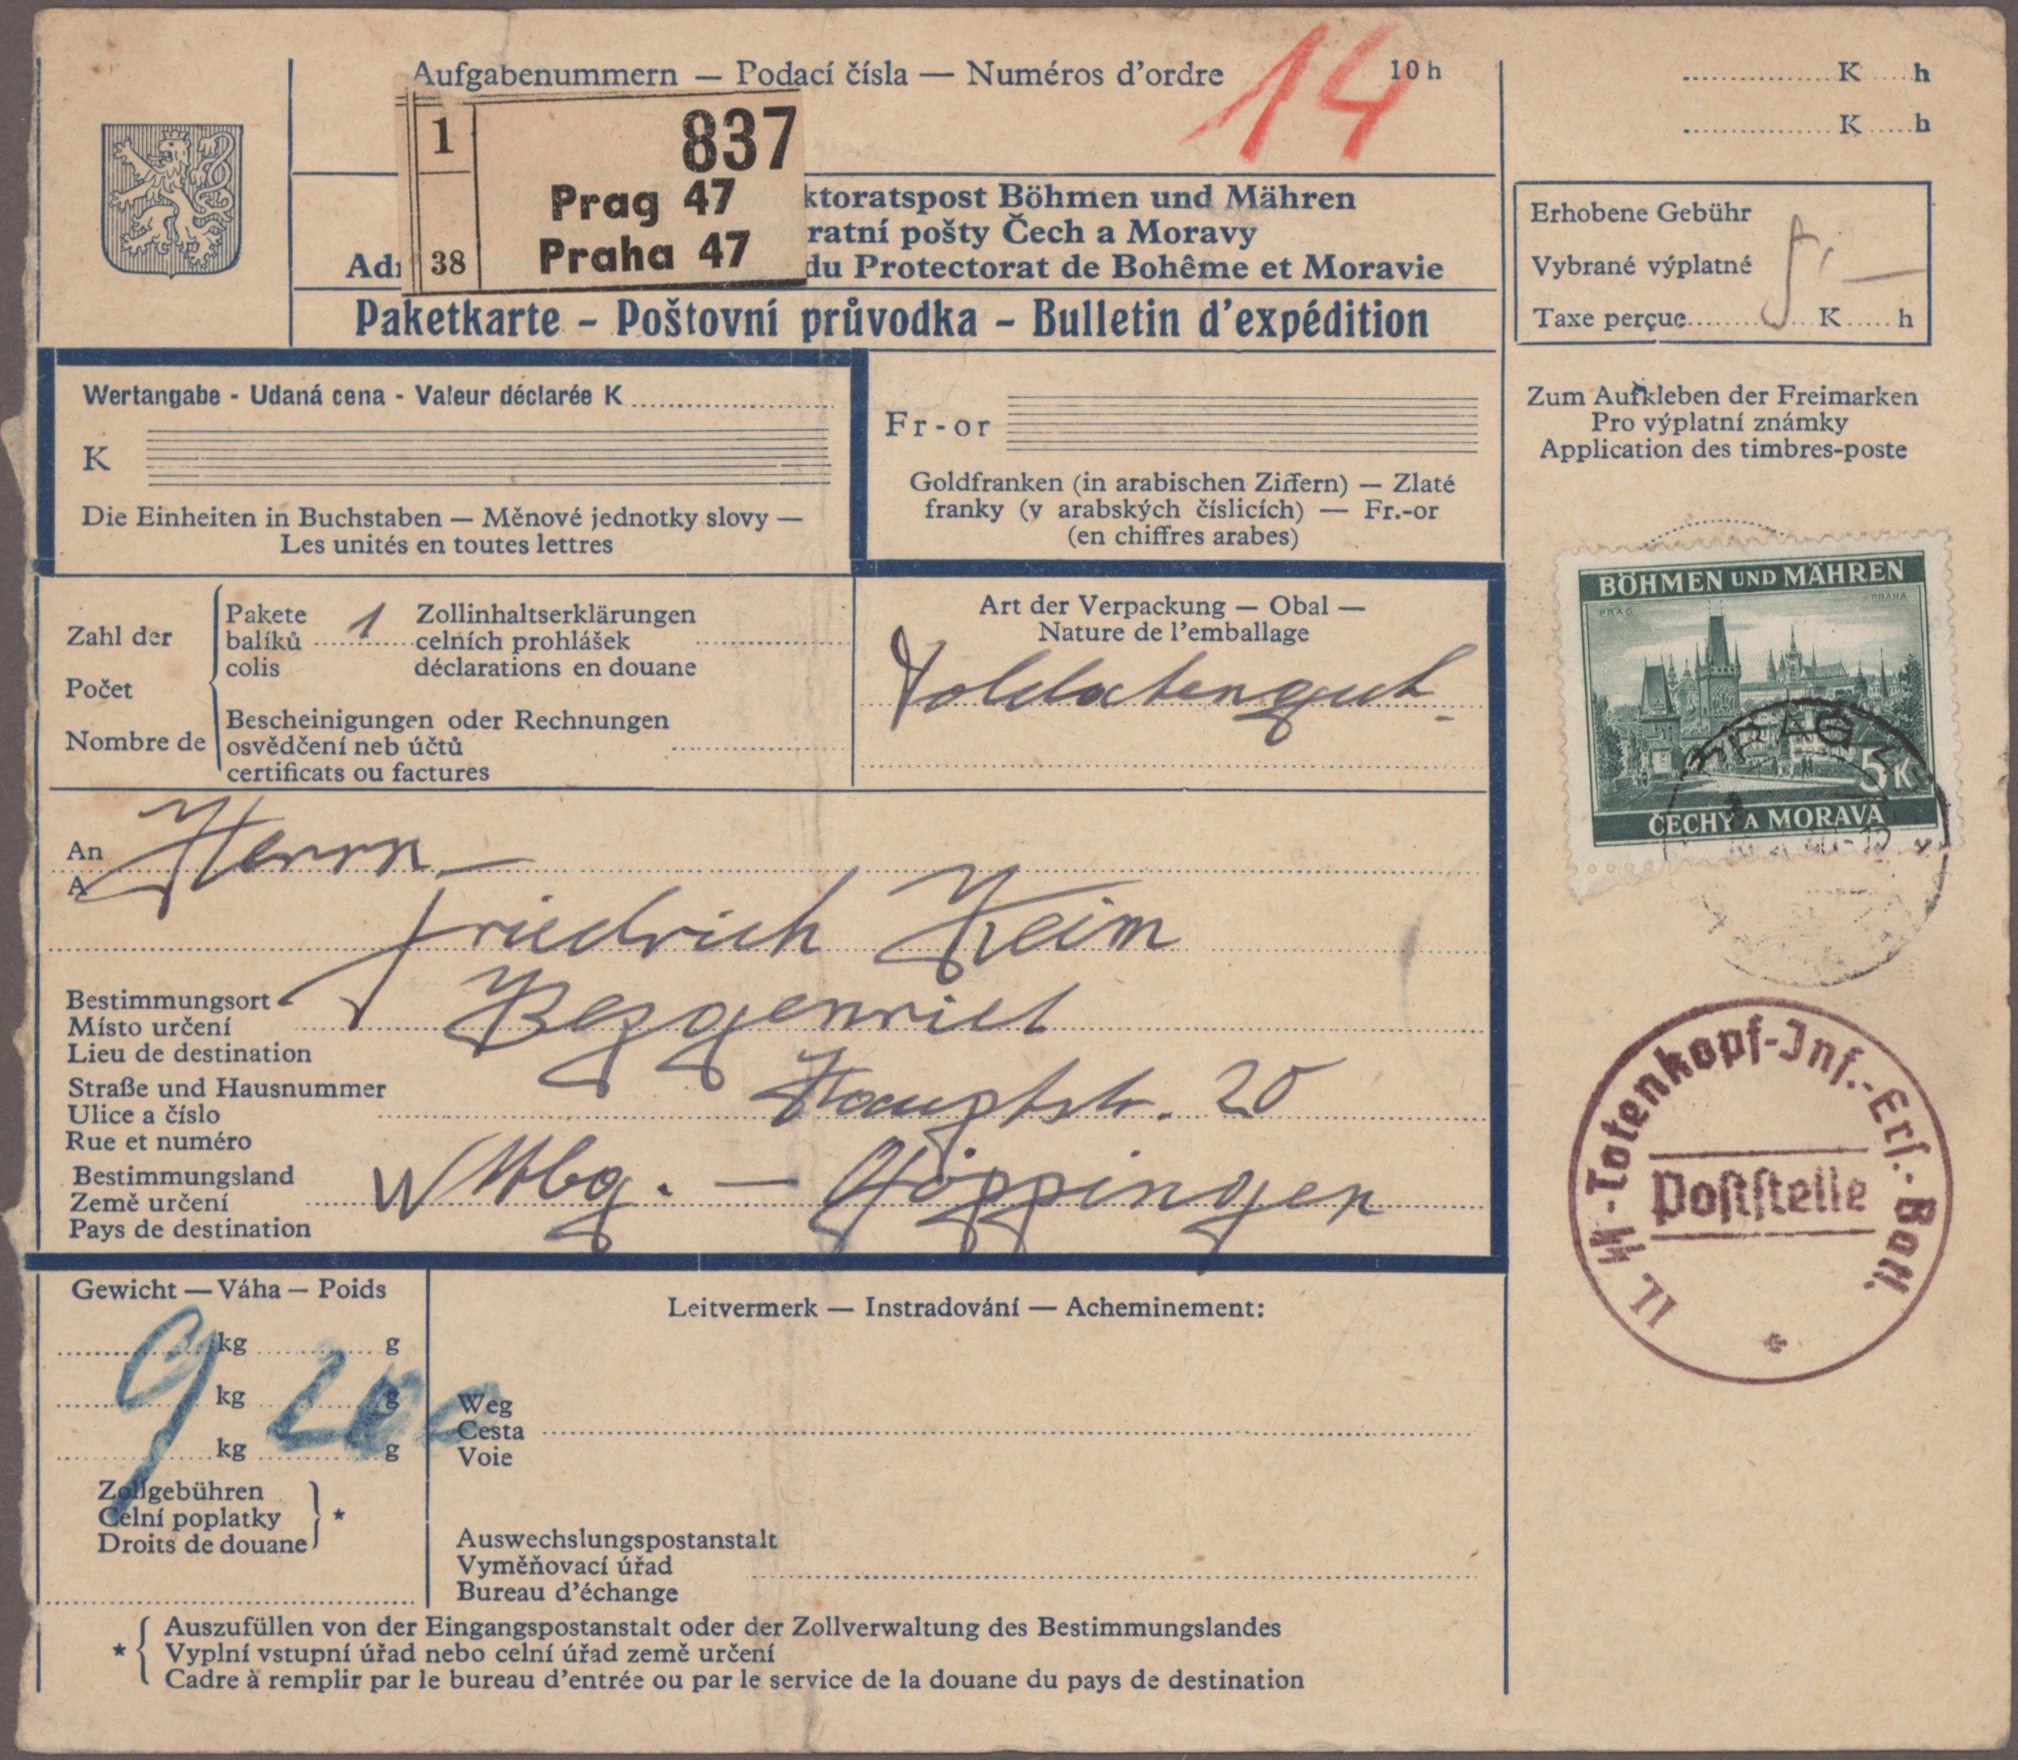 Aufgabenummern — Podací čísla — Numéros d'ordre
14
10 h
K h
K h
1
38
837
Prag 47
Praha 47
ktoratspost Böhmen und Mähren
ratní pošty Čech a Moravy
du Protectorat de Bohême et Moravie
Paketkarte - Poštovní průvodka - Bulletin d'expédition
Erhobene Gebühr
Vybrané výplatné
Taxe perçue K h
5,—
Wertangabe - Udaná cena - Valeur déclarée K
K
Die Einheiten in Buchstaben — Měnové jednotky slovy —
Les unités en toutes lettres
Fr-or
Goldfranken (in arabischen Ziffern) — Zlaté
franky (v arabských číslicích) — Fr.-or
(en chiffres arabes)
Zum Aufkleben der Freimarken
Pro výplatní známky
Application des timbres-poste
Zahl der
Počet
Nombre de
Pakete
balíků
colis
1
Zollinhaltserklärungen
celních prohlášek
déclarations en douane
Bescheinigungen oder Rechnungen
osvědčení neb účtů
certificats ou factures
Art der Verpackung — Obal —
Nature de l'emballage
Soldatengut
BÖHMEN UND MÄHREN
PRAG PRAHA
5 K
ČECHY A MORAVA
PRAG
An
A
Herrn
Friedrich Keim
Bestimmungsort
Místo určení
Lieu de destination
Bezgenriet
Straße und Hausnummer
Ulice a číslo
Rue et numéro
Hauptstr. 20
Bestimmungsland
Země určení
Pays de destination
Wttbg. — Göppingen
II. ᛋᛋ-Totenkopf-Inf.-Ers.-Batl.
Poststelle
Gewicht — Váha — Poids
kg g
kg g
kg g
9 200
Zollgebühren
Celní poplatky
Droits de douane
*
Leitvermerk — Instradování — Acheminement:
Weg
Cesta
Voie
Auswechslungspostanstalt
Vyměňovací úřad
Bureau d'échange
* Auszufüllen von der Eingangspostanstalt oder der Zollverwaltung des Bestimmungslandes
Vyplní vstupní úřad nebo celní úřad země určení
Cadre à remplir par le bureau d'entrée ou par le service de la douane du pays de destination